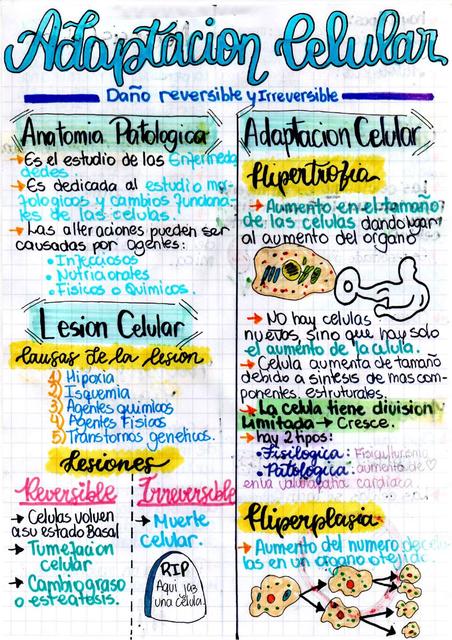 Adaptacion Celular
Daño reversible y Irreversible
Anatomia Patologica
→ Es el estudio de las Enfermeda
dedes.
→ Es dedicada al estudio mor
fologicos y cambios fundana
les de las celulas.
→ Las alteraciones pueden ser
causadas por agentes:
• Infecciosos
• Nutricionales
• Fisicos o Quimicos.
Lesion Celular
Causas de la lesion
1) Hipoxia
2) Isquemia
3) Agentes quimicos
4) Agentes Fisicos
5) Transtornos geneticos.
Lesiones
Reversible
→ Celulas volven
a su estado Basal
→ Tumefacion
celular
→ Cambio graso
o esteatosis.
Irreversible
→ Muerte
celular.
RIP
Aqui jaz
una celula.
Adaptacion Celular
Hipertrofia
→ Aumento en el tamaño
de las celulas dando lugar
al aumento del organo
→ No hay celulas
nuevas, sino que hay solo
el aumento de la celula.
→ Celula aumenta de tamaño
debido a sintesis de mas com-
ponentes estructurales.
→ La celula tiene division
limitada → Cresce.
→ hay 2 tipos:
• Fisilogica: Fisiculturismo
• Patologica: aumento de
en la valvopatia cardiaca
Hiperplasia
→ Aumento del numero de celu
las en un organo o tejido.